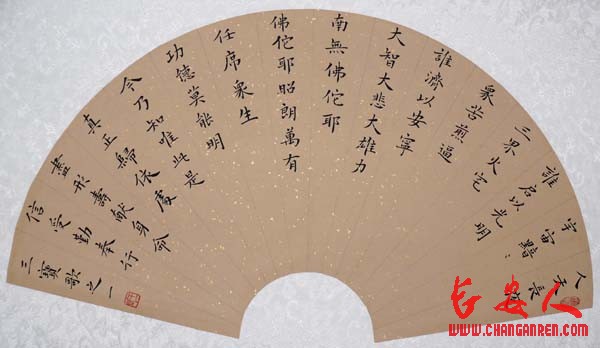 人天長
宇宙黯:
誰启以光明
三界火宅
衆苦煎逼
誰濟以安寧
大智大悲大雄力
南無佛佗耶
佛佗耶昭朗萬有
任席衆生
功德莫能明
今乃知唯此是
真正歸依處
盡形壽獻身命
信受勤奉行
三寶歌之一
长安人
WWW.CHANGANREN.COM